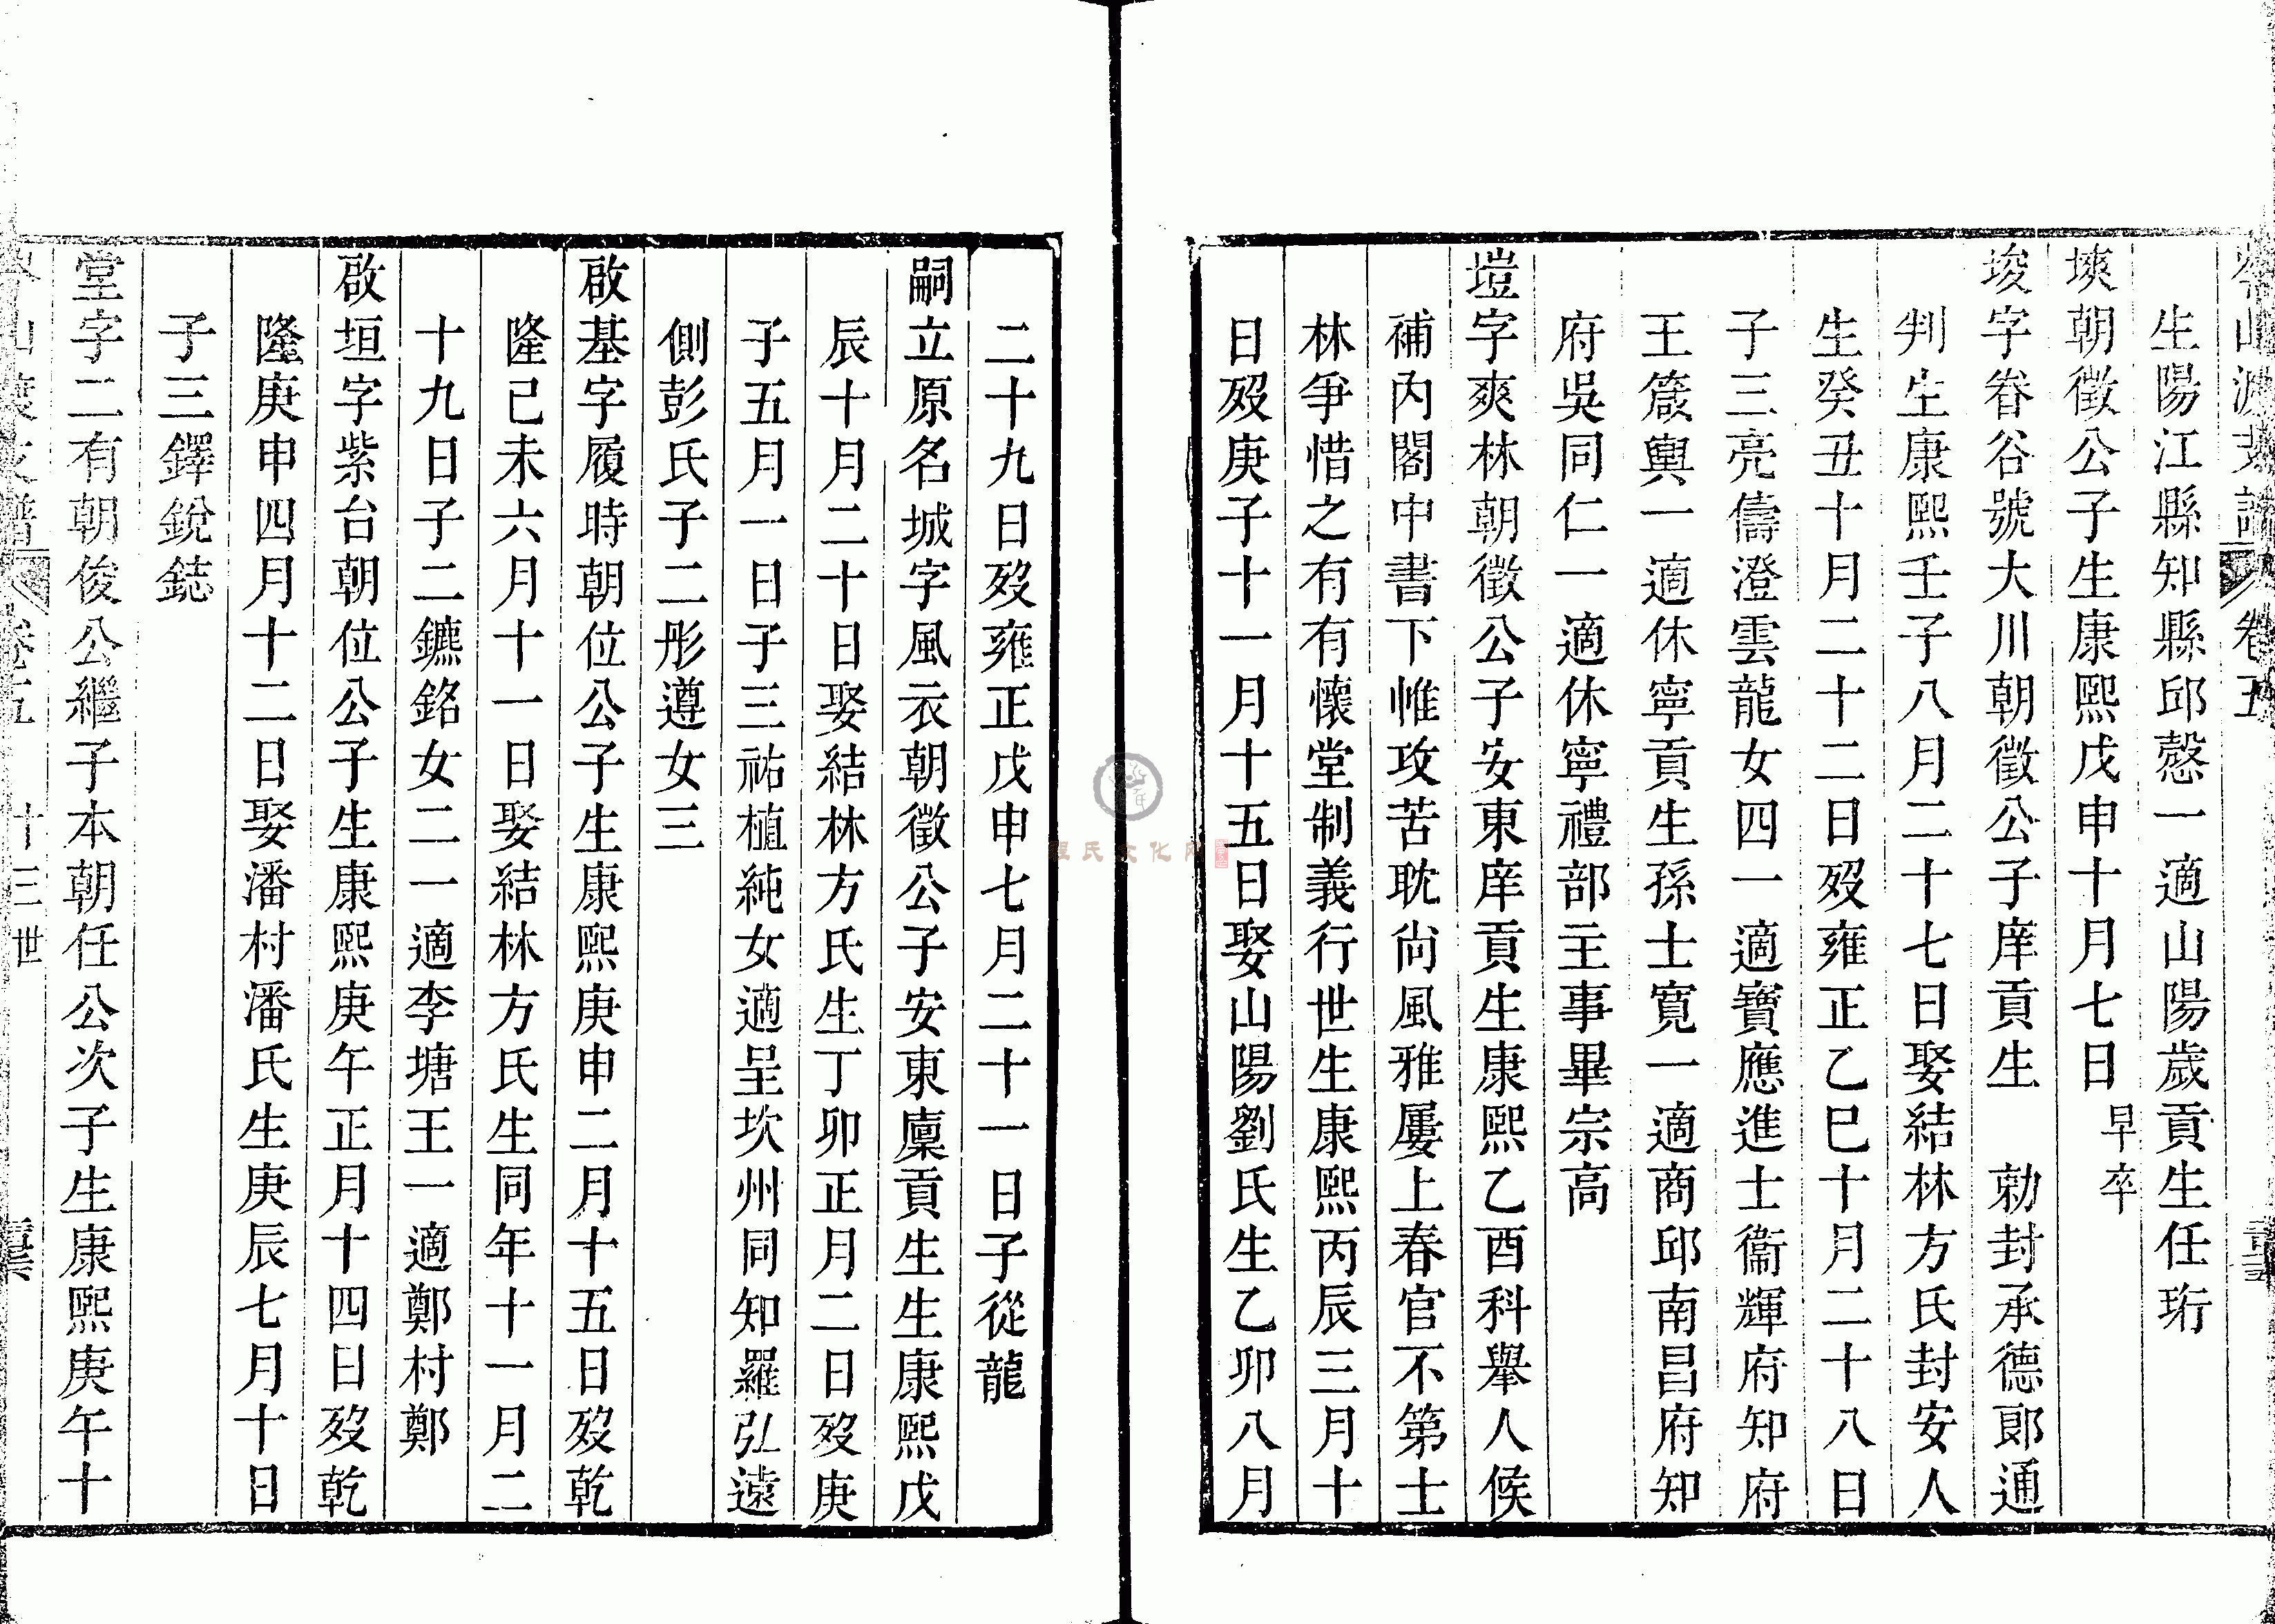 卷五
生陽江縣知縣邱慤一適山陽歲貢生任珩
塽朝徵公子生康熙戊申十月七日早卒
埈字眷谷號大川朝徵公子庠貢生　勅封承德郎通
判生康熙壬子八月二十七日娶結林方氏封安人
生癸丑十月二十二日歿雍正乙巳十月二十八日
子三亮儔澄雲龍女四一適寶應進士衞輝府知府
王箴輿一適休寧貢生孫士寬一適商邱南昌府知
府吳同仁一適休寧禮部主事畢宗高
塏字爽林朝徵公子安東庠貢生康熙乙酉科舉人候
補內閣中書下帷攻苦耽尚風雅屢上春官不第士
林爭惜之有有懷堂制義行世生康熙丙辰三月十
日歿庚子十一月十五日娶山陽劉氏生乙卯八月
二十九日歿雍正戊申七月二十一日子從龍
嗣立原名城字風衣朝徵公子安東廩貢生生康熙戊
辰十月二十日娶結林方氏生丁卯正月二日歿庚
子五月一日子三祐植純女適呈坎州同知羅弘遠
側彭氏子二彤遵女三
啟基字履時朝位公子生康熙庚申二月十五日歿乾
隆己未六月十一日娶結林方氏生同年十一月二
十九日子二鑣銘女二一適李塘王一適鄭村鄭
啟垣字紫台朝位公子生康熙庚午正月十四日歿乾
隆庚申四月十二日娶潘村潘氏生庚辰七月十日
子三鐸銳鋕
堂字二有朝俊公繼子本朝任公次子生康熙庚午十
支譜 卷五 十三世
程氏文化网